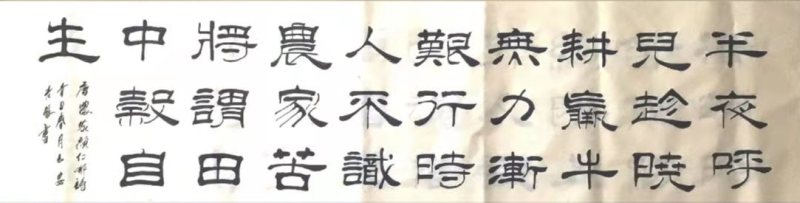 半夜呼
兒趁曉
耕羸牛
無力漸
艱行時
人不識
農家苦
將謂田
中穀自
生
唐 顏仁郁詩
春月
書